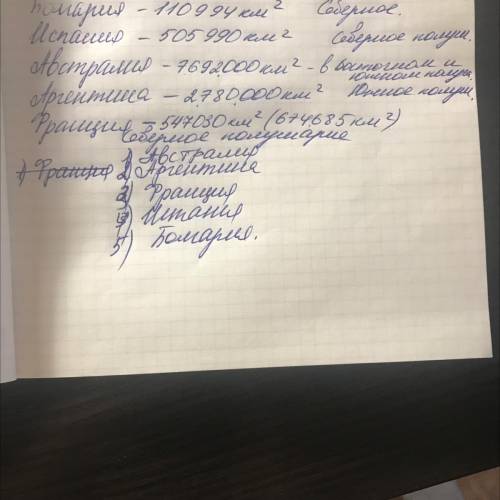 Бомария – 110994 км² Северное.
Испания – 505990 км² Северное полуш.
Австралия – 7692000 км² – в восточном и южном полуш.
Аргентина – 2780,000 км² Южное полуш.
Франция – 547030 км² (674685 км²)
Северное полушарие
1) Австралия
1) Франция 2) Аргентина
3) Франция
4) Испания
5) Бомария.